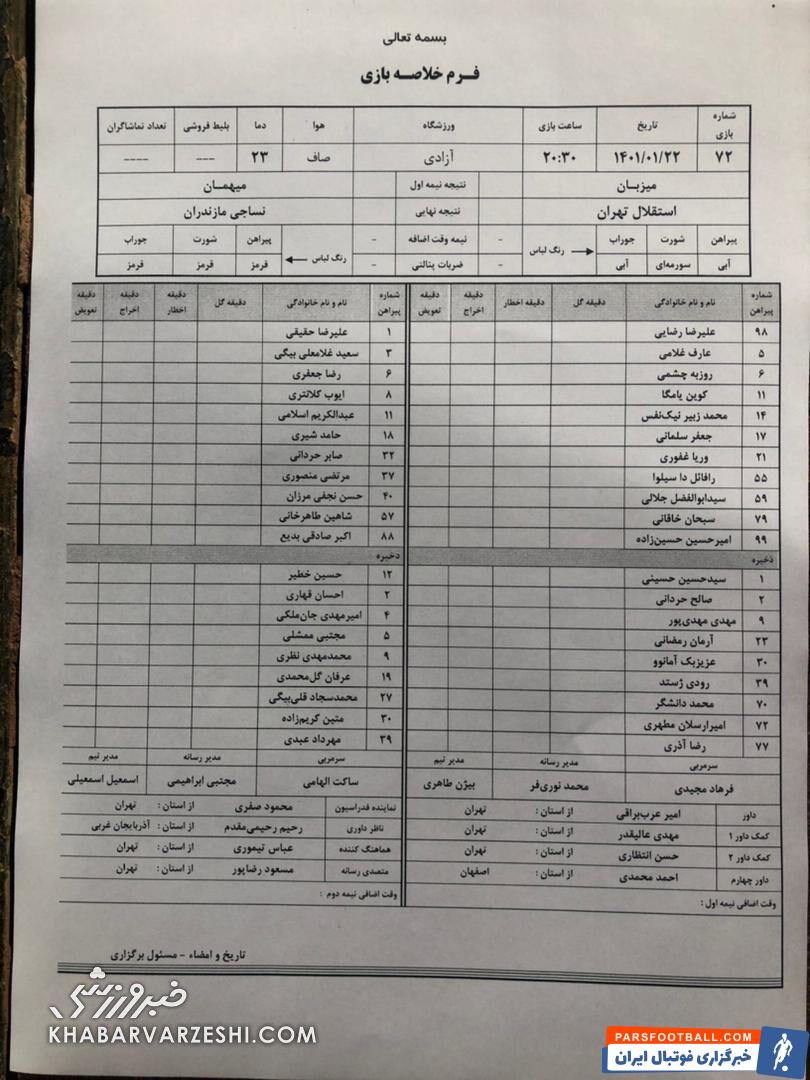 بسمه تعالی
فرم خلاصه بازی
شماره بازی تاریخ ساعت بازی ورزشگاه هوا دما بلیط فروشی تعداد تماشاگران
۷۲ ۱۴۰۱/۰۱/۲۲ ۲۰:۳۰ آزادی صاف ۲۳ --- ----
میزبان نتیجه نیمه اول میهمان
استقلال تهران نتیجه نهایی نساجی مازندران
پیراهن شورت جوراب رنگ لباس - نیمه وقت اضافه - رنگ لباس پیراهن شورت جوراب
آبی سورمه‌ای آبی - ضربات پنالتی - قرمز قرمز قرمز
شماره پیراهن نام و نام خانوادگی دقیقه گل دقیقه اخطار دقیقه اخراج دقیقه تعویض
۹۸ علیرضا رضایی
۵ عارف غلامی
۶ روزبه چشمی
۱۱ کوین یامگا
۱۴ محمد زبیر نیک‌نفس
۱۷ جعفر سلمانی
۲۱ وریا غفوری
۵۵ رافائل دا سیلوا
۵۹ سیدابوالفضل جلالی
۷۹ سبحان خاقانی
۹۹ امیرحسین حسین‌زاده
ذخیره
۱ سیدحسین حسینی
۲ صالح حردانی
۹ مهدی مهدی‌پور
۲۳ آرمان رمضانی
۳۰ عزیزبک آمانوو
۳۹ رودی ژستد
۷۰ محمد دانشگر
۷۲ امیرارسلان مطهری
۷۷ رضا آذری
سرمربی مدیر رسانه مدیر تیم
فرهاد مجیدی محمد نوری‌فر بیژن طاهری
داور امیر عرب‌براقی از استان : تهران
کمک داور ۱ مهدی عالیقدر از استان : تهران
کمک داور ۲ حسن انتظاری از استان : تهران
داور چهارم احمد محمدی از استان : اصفهان
وقت اضافی نیمه اول :
شماره پیراهن نام و نام خانوادگی دقیقه گل دقیقه اخطار دقیقه اخراج دقیقه تعویض
۱ علیرضا حقیقی
۳ سعید غلامعلی بیگی
۶ رضا جعفری
۸ ایوب کلانتری
۱۱ عبدالکریم اسلامی
۱۸ حامد شیری
۳۲ صابر حردانی
۳۷ مرتضی منصوری
۴۰ حسن نجفی مرزان
۵۷ شاهین طاهرخانی
۸۸ اکبر صادقی بدیع
ذخیره
۱۲ حسین خطیر
۲ احسان قهاری
۴ امیرمهدی جان‌ملکی
۵ مجتبی ممشلی
۹ محمدمهدی نظری
۱۹ عرفان گل‌محمدی
۲۷ محمدسجاد قلی‌بیگی
۳۰ متین کریم‌زاده
۳۹ مهرداد عبدی
سرمربی مدیر رسانه مدیر تیم
ساکت الهامی مجتبی ابراهیمی اسمعیل اسمعیلی
نماینده فدراسیون محمود صفری از استان : تهران
ناظر داوری رحیم رحیمی‌مقدم از استان : آذربایجان غربی
هماهنگ کننده عباس تیموری از استان : تهران
متصدی رسانه مسعود رضاپور از استان : تهران
وقت اضافی نیمه دوم :
تاریخ و امضاء - مسئول برگزاری
خبرورزشی
KHABARVARZESHI.COM
PARSFOOTBALL.COM
خبرگزاری فوتبال ایران